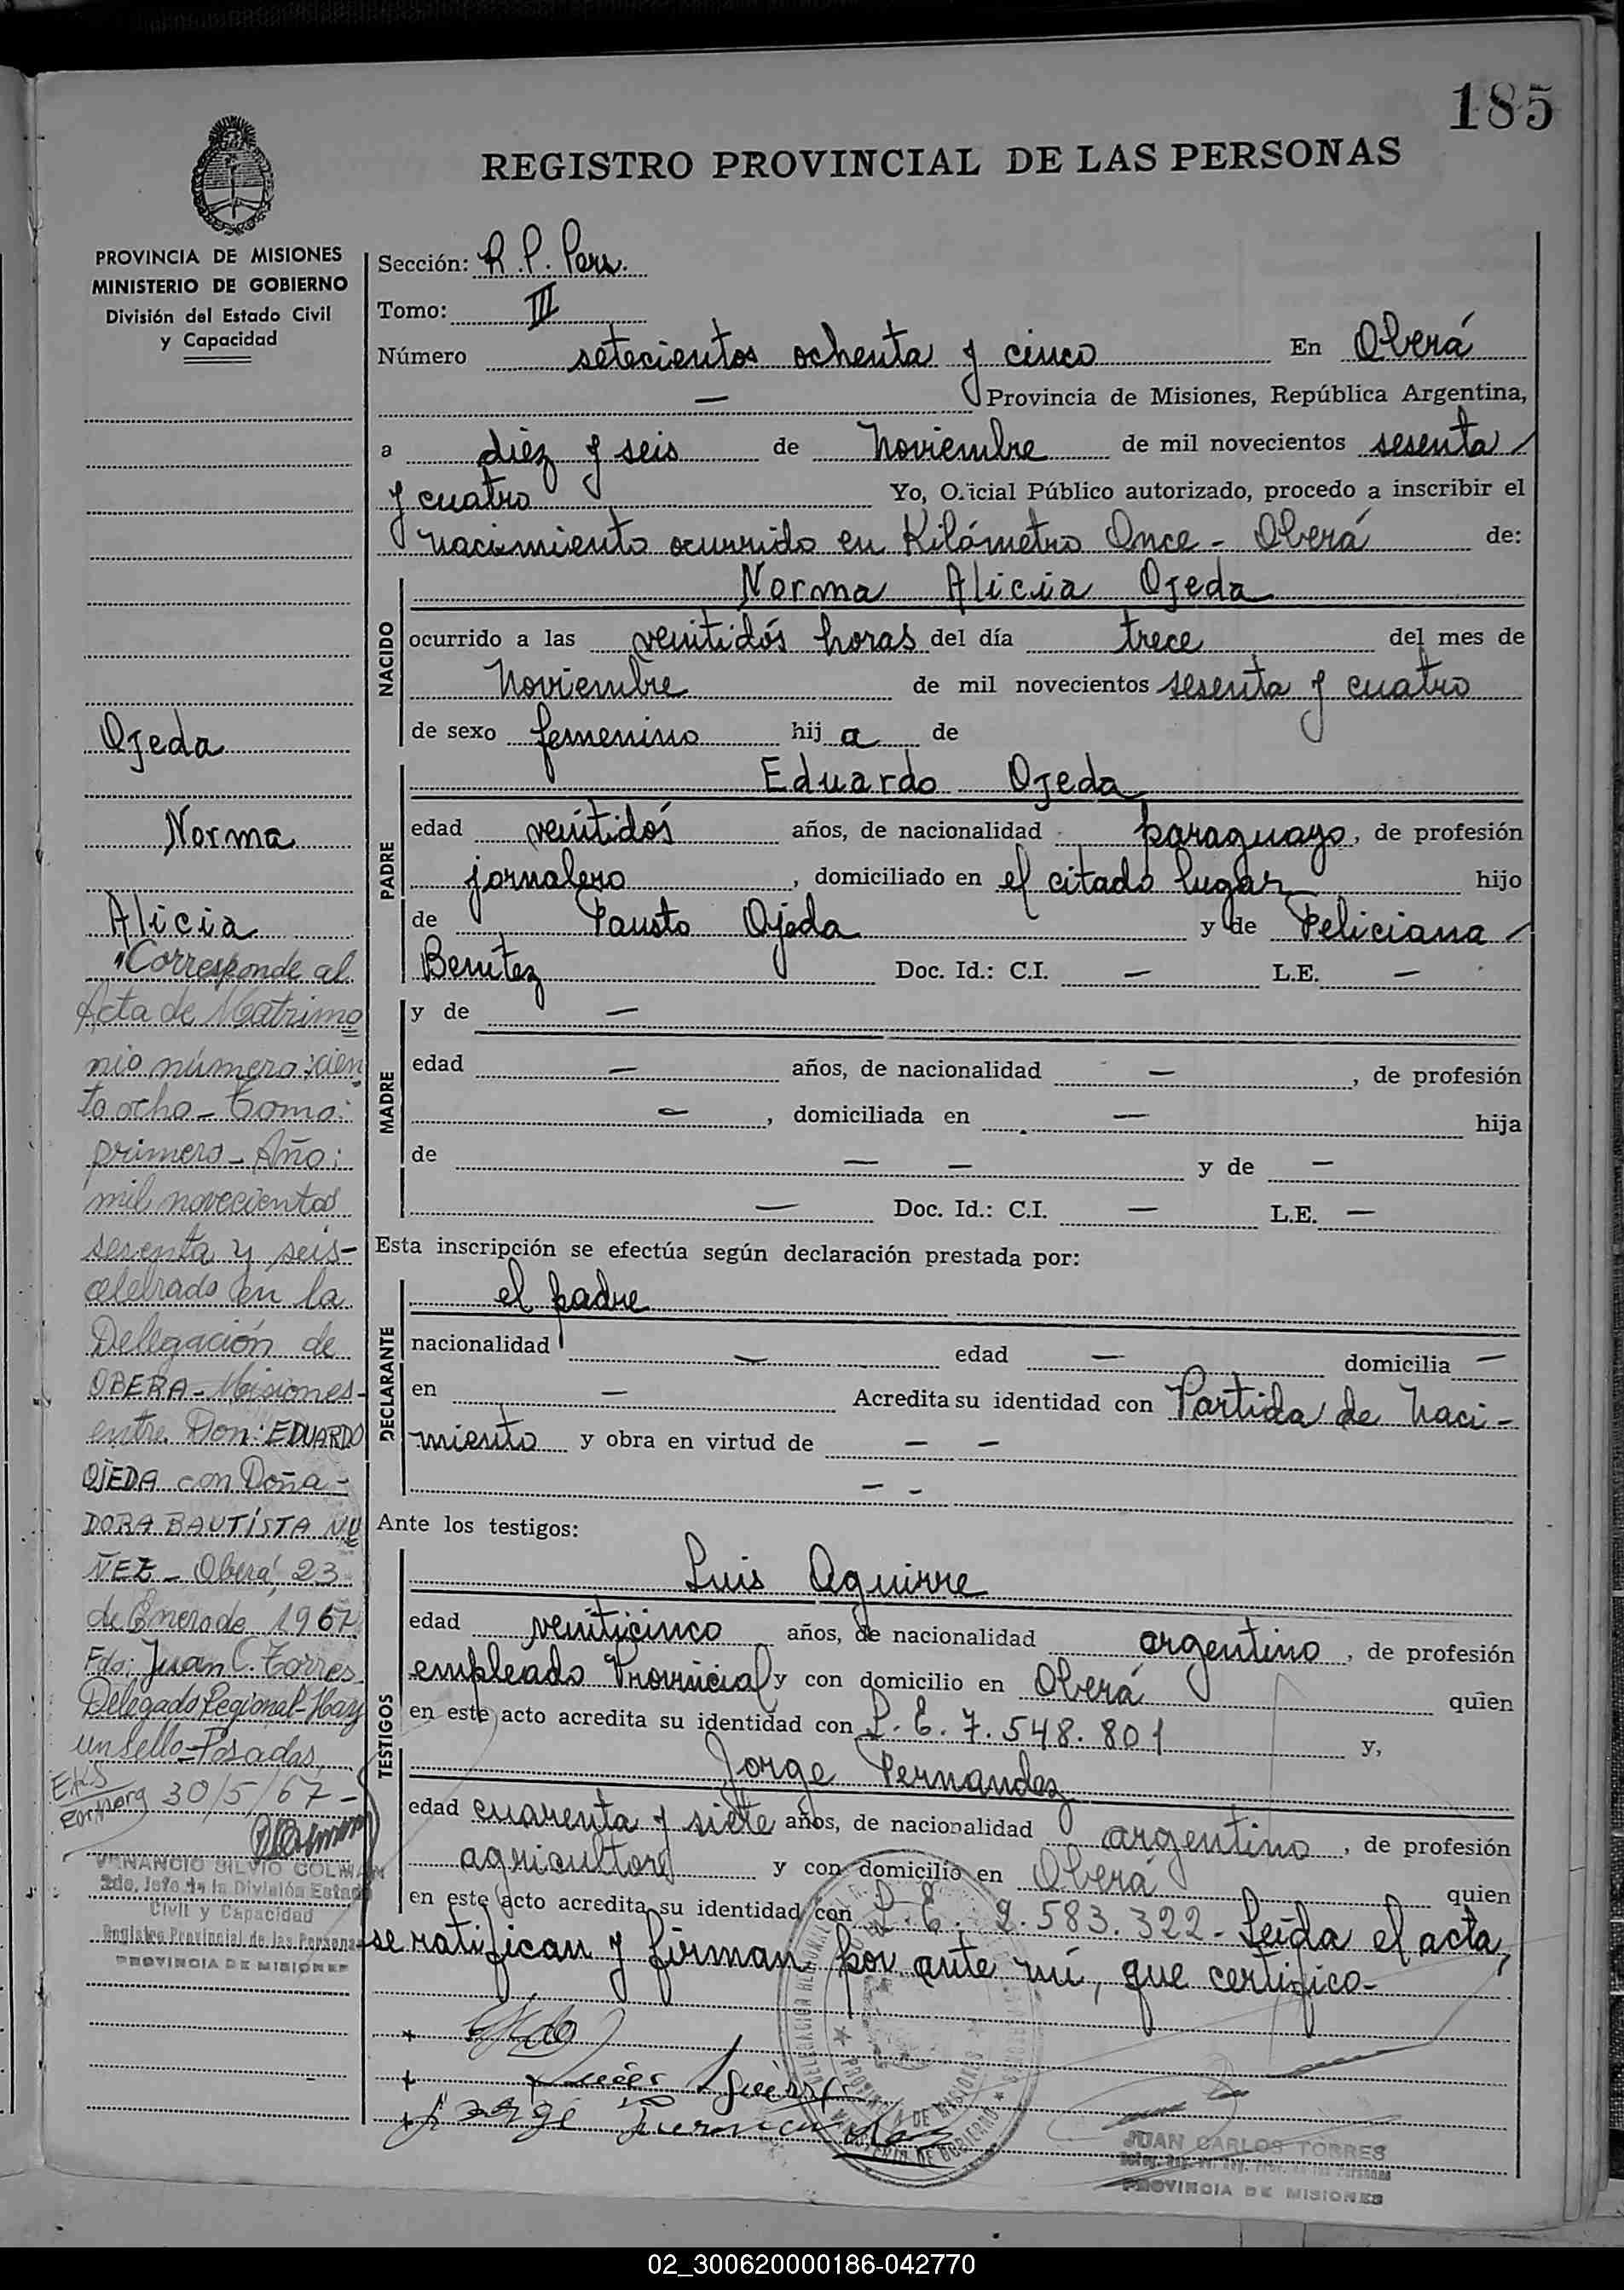 185
REGISTRO PROVINCIAL DE LAS PERSONAS
PROVINCIA DE MISIONES
MINISTERIO DE GOBIERNO
División del Estado Civil
y Capacidad
Ojeda
Norma
Alicia
"Corresponde al
Acta de Matrimo
nio número: cien
to ocho - Tomo:
primero - Año:
mil novecientos
sesenta y seis -
celebrado en la
Delegación de
OBERA - Misiones -
entre Don: EDUARDO
OJEDA con Doña -
DORA BAUTISTA NU
ÑEZ - Oberá, 23
de Enero de 1967
Fdo: Juan C. Torres
Delegado Regional - Hay
un sello - Posadas,
30/5/67 -
VENANCIO SILVIO COLMAN
2do. Jefe de la División Estado
Civil y Capacidad
Registro Provincial de las Personas
PROVINCIA DE MISIONES
Sección: R. P. Pers.
Tomo: III
Número setecientos ochenta y cinco En Oberá
— Provincia de Misiones, República Argentina,
a diéz y seis de Noviembre de mil novecientos sesenta
y cuatro Yo, Oficial Público autorizado, procedo a inscribir el
nacimiento ocurrido en Kilómetro Once - Oberá de:
NACIDO
Norma Alicia Ojeda
ocurrido a las venitidós horas del día trece del mes de
Noviembre de mil novecientos sesenta y cuatro
de sexo femenino hij a de
PADRE
Eduardo Ojeda
edad venitidós años, de nacionalidad paraguayo, de profesión
jornalero, domiciliado en el citado lugar hijo
de Fausto Ojeda y de Feliciana
Benitez Doc. Id.: C.I. — L.E. —
MADRE
y de —
edad — años, de nacionalidad —, de profesión
—, domiciliada en — hija
de — — y de —
— Doc. Id.: C.I. — L.E. —
Esta inscripción se efectúa según declaración prestada por:
DECLARANTE
el padre
nacionalidad — edad — domicilia —
en — Acredita su identidad con Partida de Naci -
miento y obra en virtud de — —
- -
Ante los testigos:
TESTIGOS
Luis Aguirre
edad veniticinco años, de nacionalidad argentino, de profesión
empleado Provincial y con domicilio en Oberá quien
en este acto acredita su identidad con L. E. 7.548.801 y,
Jorge Fernandez
edad cuarenta y siete años, de nacionalidad argentino, de profesión
agricultor y con domicilio en Oberá quien
en este acto acredita su identidad con L. E. 2.583.322 - Leída el acta,
se ratifican y firman por ante mí, que certifico -
JUAN CARLOS TORRES
PROVINCIA DE MISIONES
02_300620000186-042770